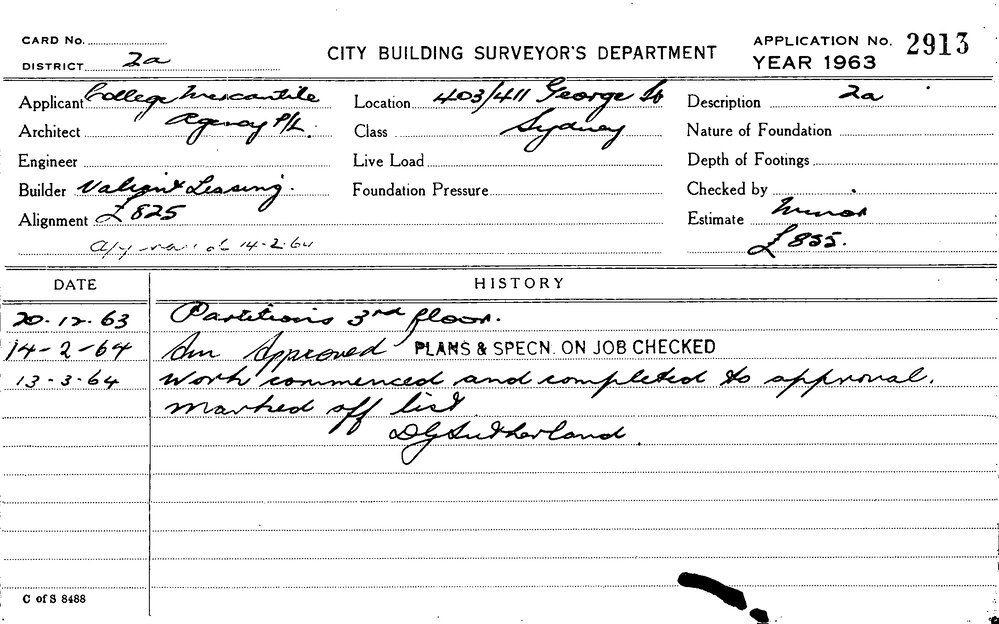 CARD No.
DISTRICT 2a
CITY BUILDING SURVEYOR'S DEPARTMENT
APPLICATION No. 2913
YEAR 1963
Applicant College Mercantile
Agency P/L.
Location 403/411 George St
Sydney
Description 2a
Architect
Class
Nature of Foundation
Engineer
Live Load
Depth of Footings
Builder Valiant Leasing.
Foundation Pressure
Checked by
Alignment £825
Estimate Minor
£855.
14-2-64
DATE
HISTORY
20.12.63 Partitions 3rd floor.
14-2-64 Approved PLANS & SPECN. ON JOB CHECKED
13-3-64 Work commenced and completed to approval.
Marked off list
DGSutherland.
C of S 8488